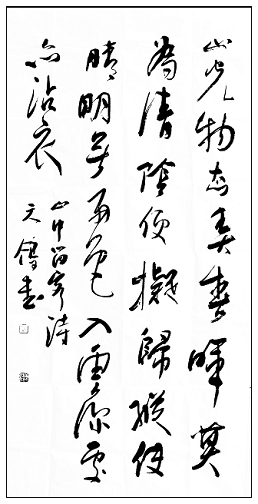 山光物态弄春暉莫
為清陰便擬歸縱使
晴明無雨色入雲深處
亦沾衣
山中留客诗
天
書